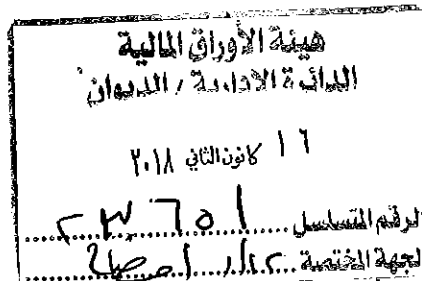 هيئة الأوراق المالية
الدائرة الادارية / الديوان
١٦ كانون الثاني ٢٠١٨
الرقم المتسلسل
الجهة المختصة